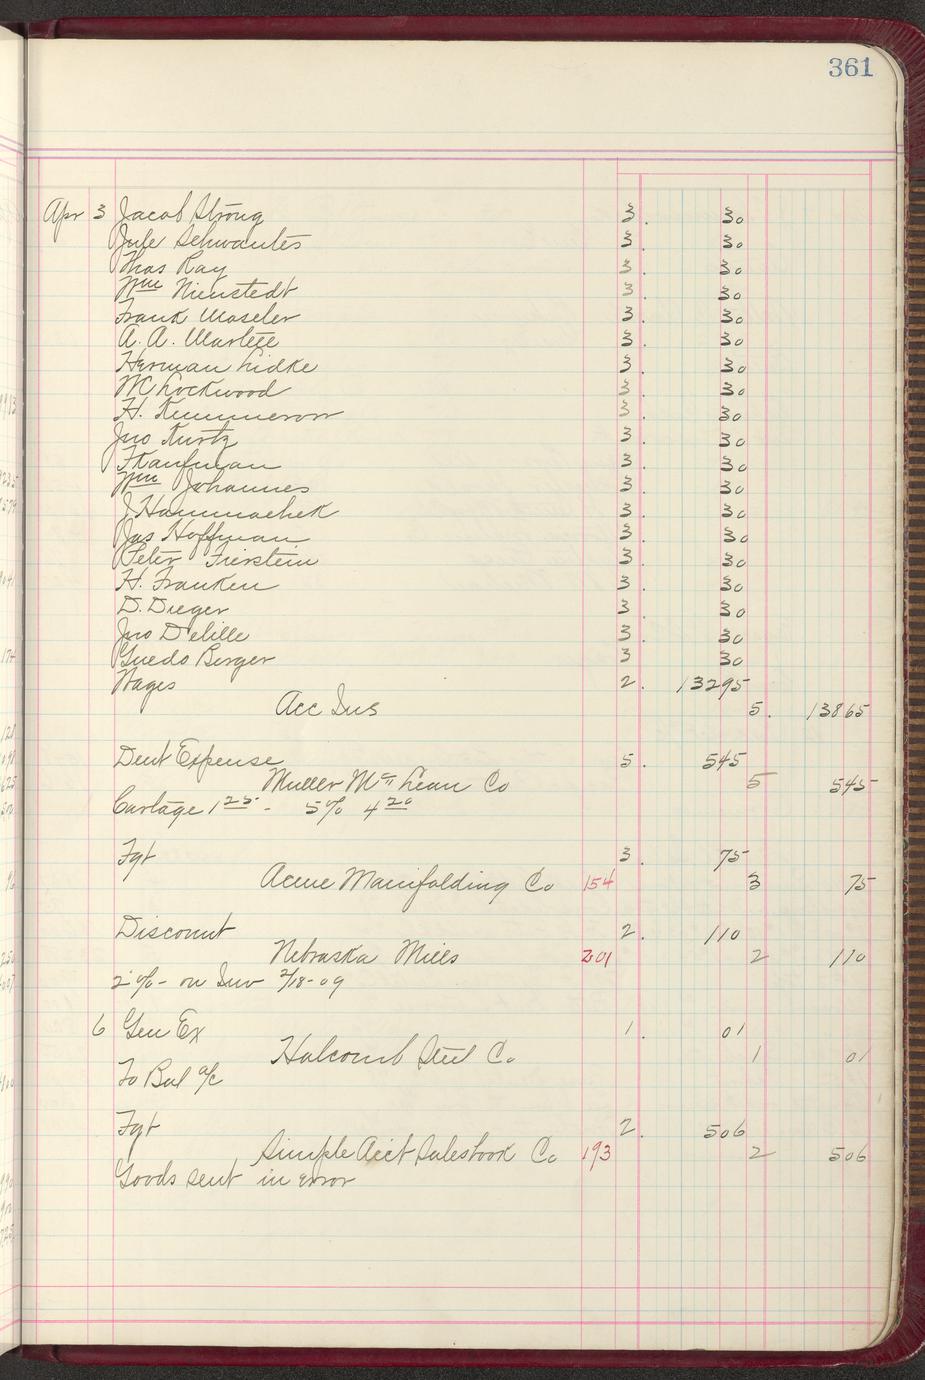 361
Apr 3 Jacob Strong 3. 30
Jule Schwantes 3. 30
Thos Ray 3. 30
Wm Nienstedt 3. 30
Frank Moseler 3. 30
A. A. 3. 30
Herman Lidke 3. 30
W Lockwood 3. 30
H. Kummerow 3. 30
Jno Kurtz 3. 30
F Kaufman 3. 30
Wm Johannes 3. 30
J Hammachek 3. 30
Jas Hoffman 3. 30
Peter Fierstein 3. 30
H. Franken 3. 30
D. Dreger 3. 30
Jno Delille 3. 30
Guedo Berger 3 30
Wages 2. 13295
Acc Ins 5. 13865
Dent Expense 5. 545
Muller McLean Co 5 545
Cartage 1 25 - 5% 4 20
Fgt 3. 75
Acme Manifolding Co 154 3 75
Discount 2. 110
Nebraska Mills 201 2 110
2% - on Inv 2/18-09
6 Gen Ex 1. 01
Halcomb Steel Co 1 01
To Bal a/c
Fgt 2. 506
Simple Acct Salesbook Co 193 2 506
Goods sent in error